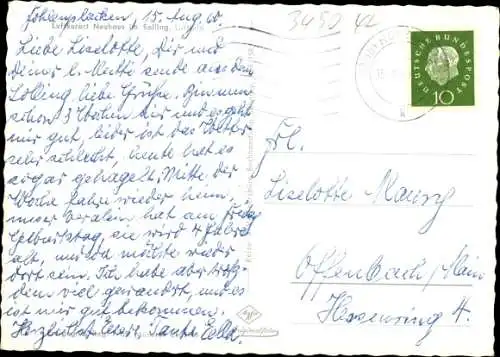 Fohlenplacken, 15. Aug. 60
Luftkurort Neuhaus im Solling,
Liebe Liselotte, Dir und
Deiner l. Mutti sende aus dem
Solling liebe Grüße. Bin nun
schon 3 Wochen hier und es geht
mir gut, leider ist das Wetter
sehr schlecht, heute hat es
sogar gehagelt. Mitte der
Woche fahre wieder heim,
unser hat am Freitag
Geburtstag, sie wird 4 Jahre
alt, und da möchte wieder
dort sein. Ich habe aber trotz-
dem viel gewandert, und es
ist mir gut bekommen.
Herzlichst Tante Ella
3450
DEUTSCHE BUNDESPOST
10
Frl.
Liselotte
Offenbach/Main
Hessenring 4.
Agfa